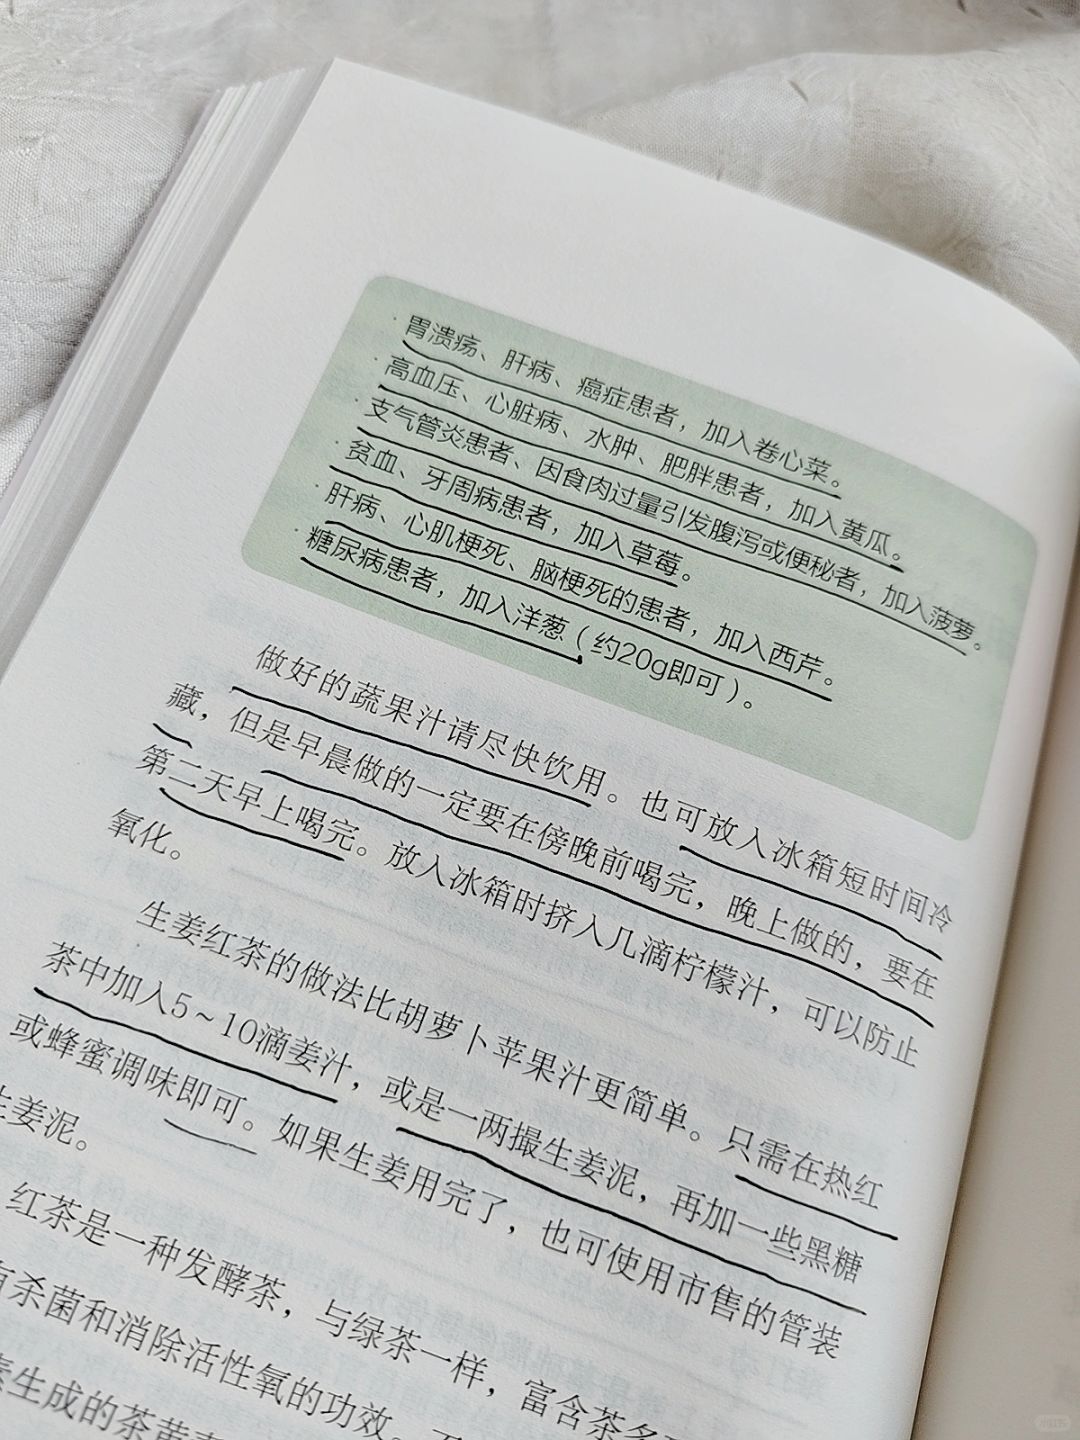 · 胃溃疡、肝病、癌症患者，加入卷心菜。
· 高血压、心脏病、水肿、肥胖患者，加入黄瓜。
· 支气管炎患者、因食肉过量引发腹泻或便秘者，加入菠萝。
· 贫血、牙周病患者，加入草莓。
· 肝病、心肌梗死、脑梗死的患者，加入西芹。
· 糖尿病患者，加入洋葱（约20g即可）。
做好的蔬果汁请尽快饮用。也可放入冰箱短时间冷
藏，但是早晨做的一定要在傍晚前喝完，晚上做的，要在
第二天早上喝完。放入冰箱时挤入几滴柠檬汁，可以防止
氧化。
生姜红茶的做法比胡萝卜苹果汁更简单。只需在热红
茶中加入5～10滴姜汁，或是一两撮生姜泥，再加一些黑糖
或蜂蜜调味即可。如果生姜用完了，也可使用市售的管装
生姜泥。
红茶是一种发酵茶，与绿茶一样，富含茶多
有杀菌和消除活性氧的功效。
素生成的茶黄